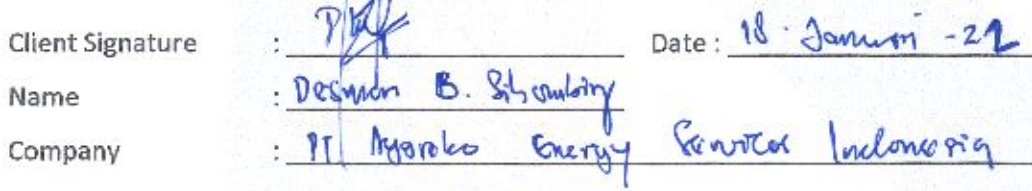 Client Signature : Date : 18 Januari - 22
Name : Desmon B. Sihombing
Company : PT Energy Services Indonesia